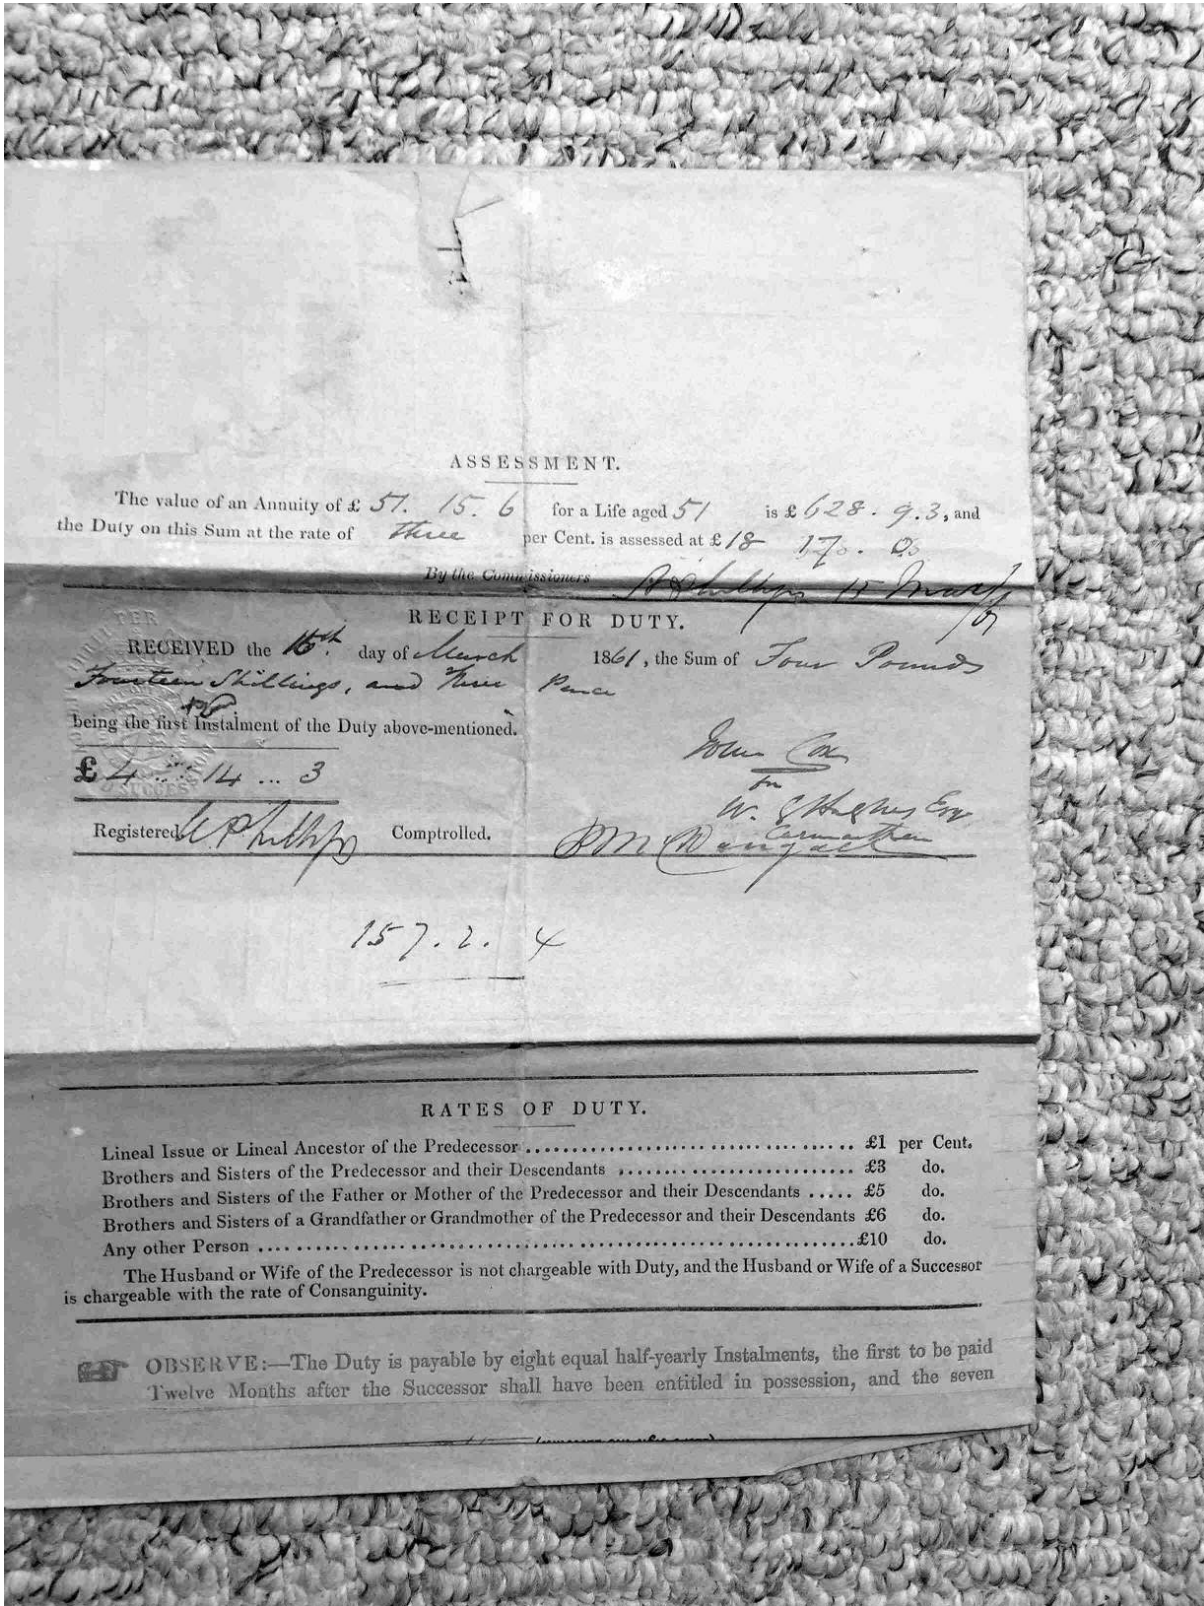 ASSESSMENT.
The value of an Annuity of £ 51. 15. 6 for a Life aged 51 is £ 628. 9. 3, and
the Duty on this Sum at the rate of three per Cent. is assessed at £ 18 17. 0
By the Commissioners Phillips 15 March /61
RECEIPT FOR DUTY.
RECEIVED the day of March 1861, the Sum of Four Pounds
Fourteen Shillings, and three Pence
being the first Instalment of the Duty above-mentioned.
£ 4 ... 14 ... 3
John Cox
for
W. Hughes Esq
Carmarthen
Registered Phillips Comptrolled.
157. 2. 4
RATES OF DUTY.
Lineal Issue or Lineal Ancestor of the Predecessor ........ £1 per Cent.
Brothers and Sisters of the Predecessor and their Descendants ........ £3 do.
Brothers and Sisters of the Father or Mother of the Predecessor and their Descendants ..... £5 do.
Brothers and Sisters of a Grandfather or Grandmother of the Predecessor and their Descendants £6 do.
Any other Person ........ £10 do.
The Husband or Wife of the Predecessor is not chargeable with Duty, and the Husband or Wife of a Successor
is chargeable with the rate of Consanguinity.
OBSERVE:—The Duty is payable by eight equal half-yearly Instalments, the first to be paid
Twelve Months after the Successor shall have been entitled in possession, and the seven